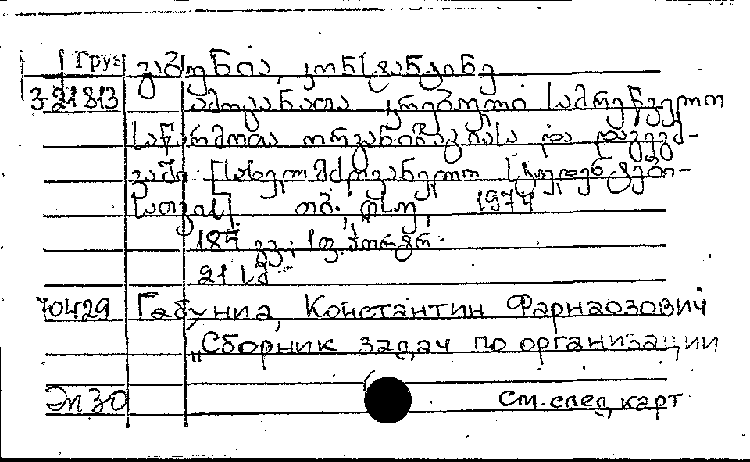 Груз გაბუნია, კონსტანტინე
3-21813 ამოცანათა კრებული სამრეწველო
საწარმოთა ორგანიზაციასა და დაგეგმ-
ვაში [სახელმძღვანელო სტუდენტები-
სათვის] თბ., თსუ, 1974
187 გვ., 1 ფ. პორტრ.
21 სმ
70429 Габуниа, Константин Фарнаозович
„Сборник задач по организации
Эп30 См. след. карт.